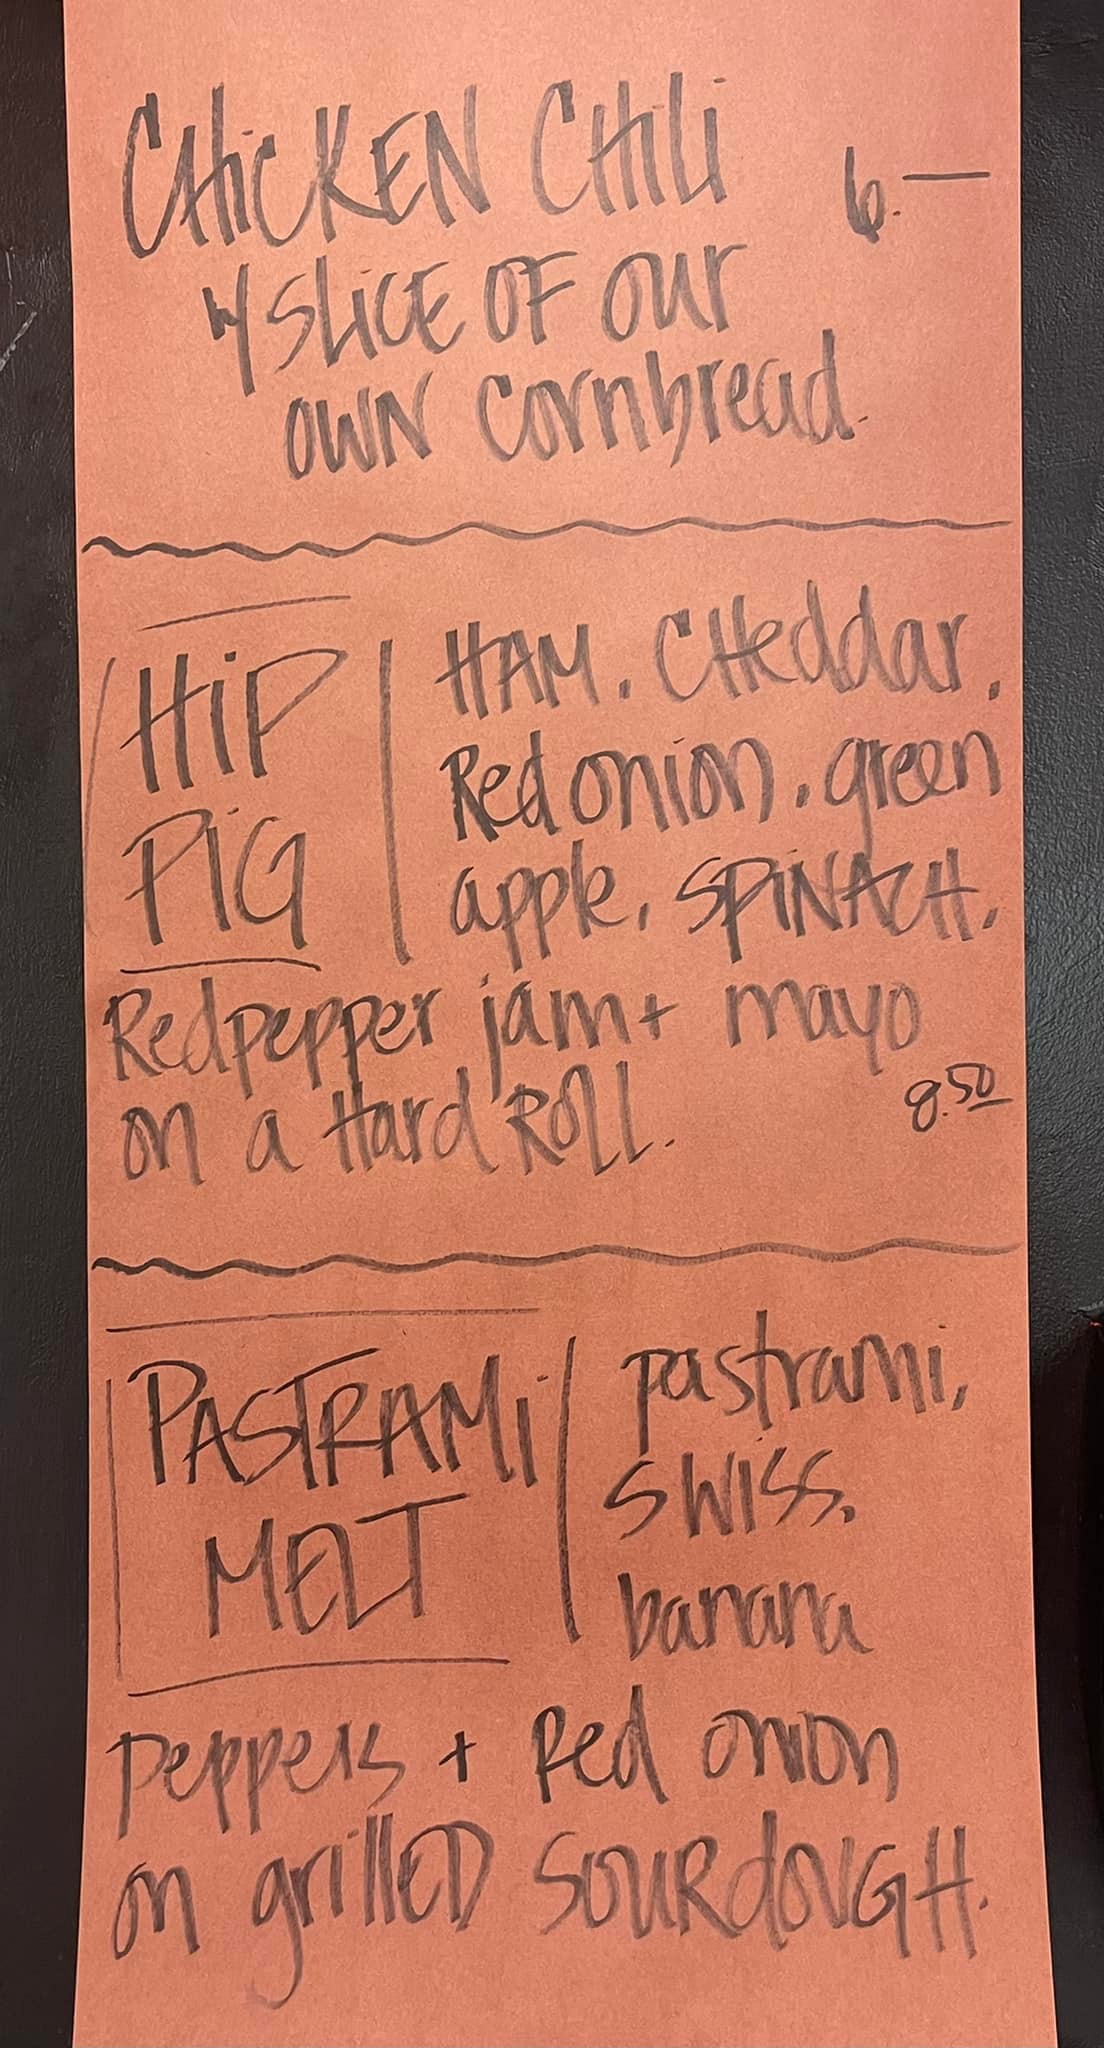 CHiCKEN CHiLi 6.—
w/ SLiCE OF our
OWN cornbread.
HiP PiG
HAM. CHeddar.
Red onion. green
apple. SPiNACH.
Red pepper jam + mayo
on a Hard Roll. 8.50
PASTRAMi MELT
pastrami,
swiss.
banana
peppers + Red onion
on grillED SOURdOUGH.